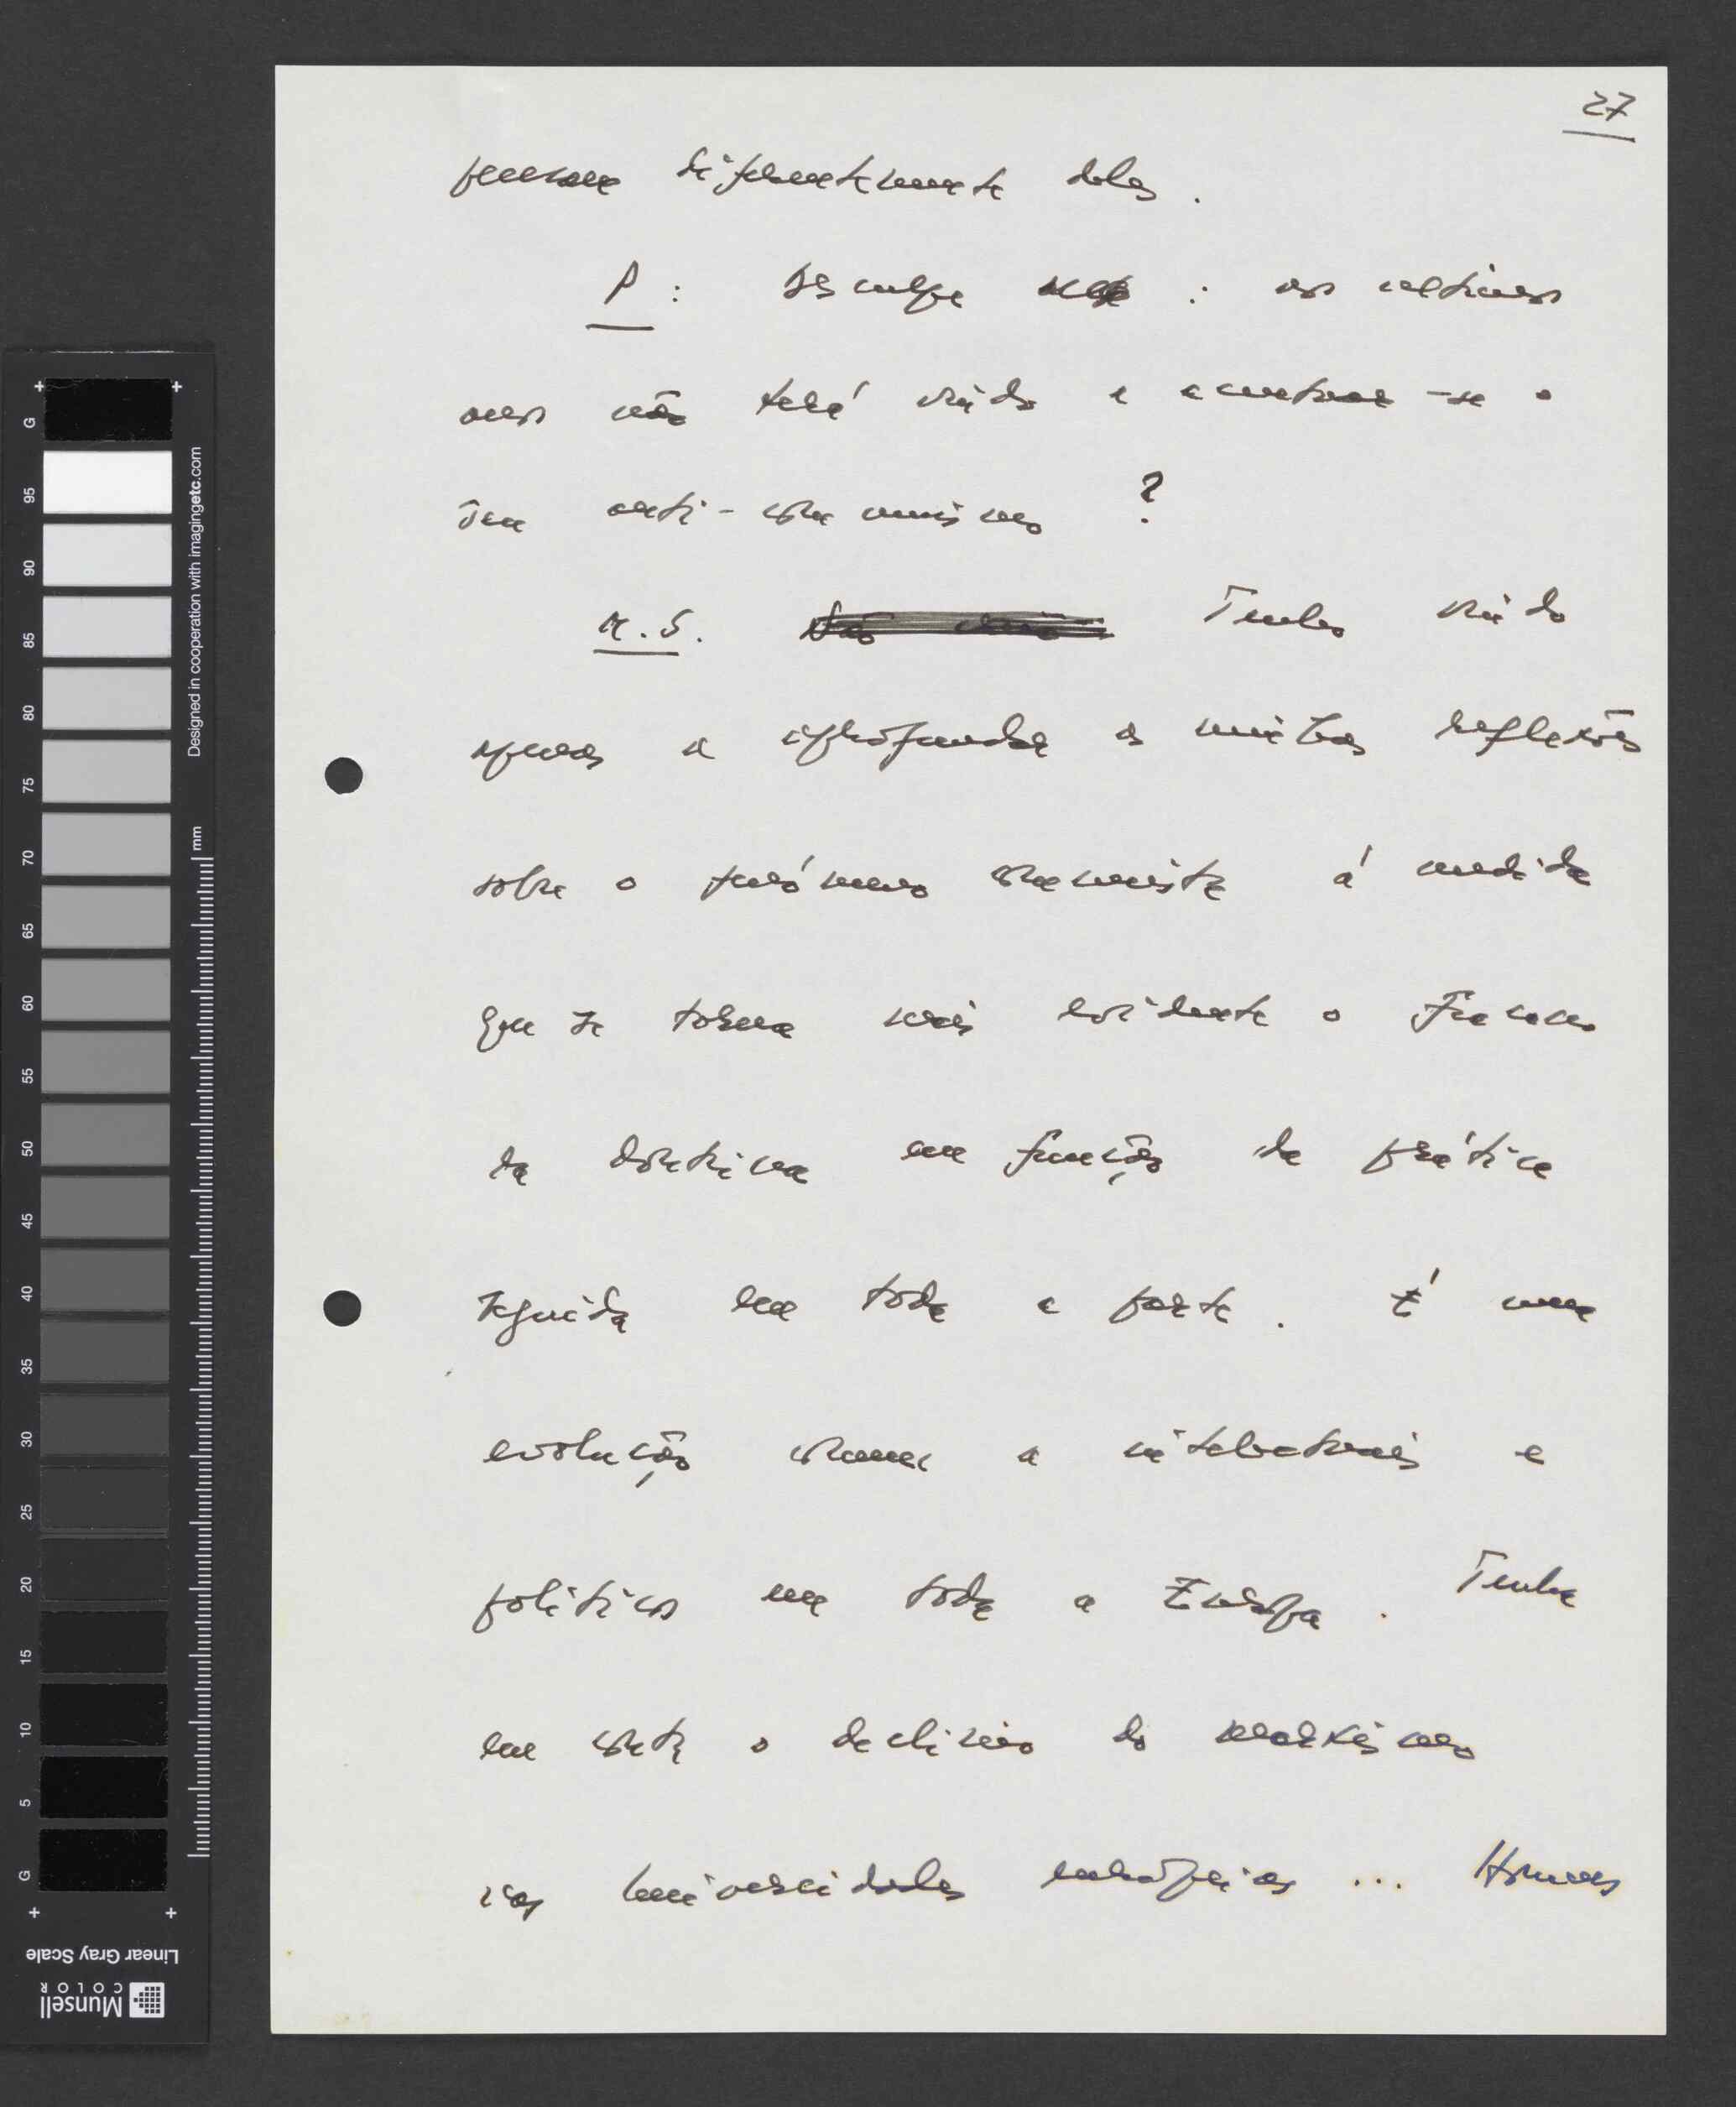 27
pensam diferentemente deles.
P: Desculpe : nos últimos
anos não terá vindo a acentuar-se o
seu anti-comunismo ?
M.S. Tenho vindo
apenas a aprofundar as minhas reflexões
sobre o fenómeno comunista à medida
que se torna mais evidente o fracasso
da doutrina em função da prática
seguida em toda a parte. É uma
evolução comum a intelectuais e
políticos em toda a Europa. Tenha
em conta o declínio do marxismo
nas Universidades europeias ... Homens
G
95
90
85
80
75
70
65
60
55
50
45
40
35
30
25
20
15
10
5
G
mm
Designed in cooperation with imagingetc.com
Linear Gray Scale
Munsell
COLOR